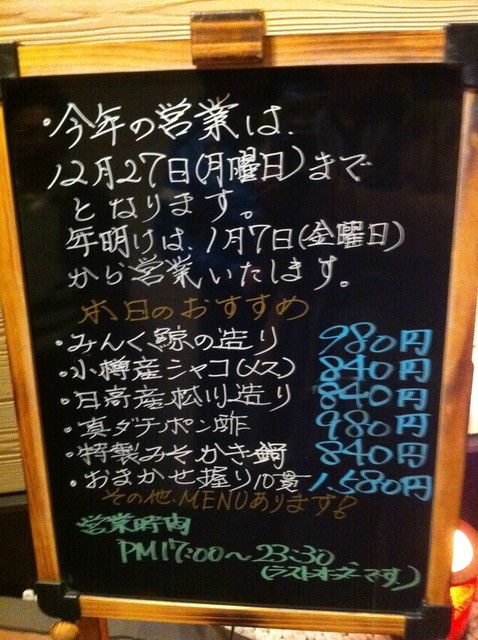 ・今年の営業は、
12月27日(月曜日)まで
となります。
年明けは、1月7日(金曜日)
から営業いたします。
本日のおすすめ
・みんく鯨の造り 980円
・小樽産シャコ(メス) 840円
・日高産松川造り 840円
・真ダチポン酢 980円
・特製みそかき鍋 840円
・おまかせ握り10貫 1.580円
その他.MENUあります!
営業時間
PM17:00〜23:30
(ラストオーダーです)